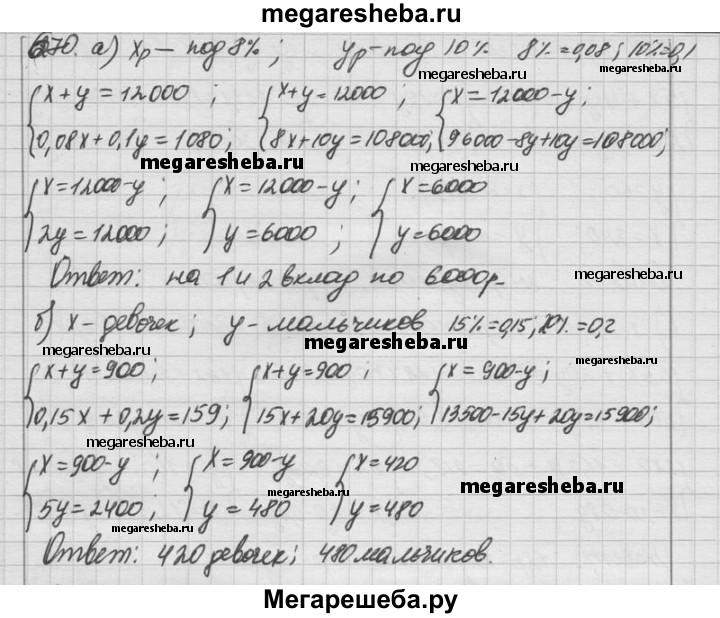 megaresheba.ru
670. а) хр — под 8% ; ур — под 10% 8% = 0,08 ; 10% = 0,1
megaresheba.ru megaresheba.ru
{x+y=12000 ; {x+y=12000 ; {x=12000-y ;
{0,08x+0,1y=1080; {8x+10y=108000; {96000-8y+10y=108000;
megaresheba.ru megaresheba.ru
{x=12000-y ; {x=12000-y ; {x=6000
{2y=12000 ; {y=6000 ; {y=6000
Ответ: на 1 и 2 вклад по 6000р.
megaresheba.ru
б) х - девочек ; у - мальчиков 15% = 0,15 ; 20% = 0,2
megaresheba.ru megaresheba.ru
{x+y=900 ; {x+y=900 ; {x=900-y ;
{0,15x+0,2y=159; {15x+20y=15900; {13500-15y+20y=15900;
megaresheba.ru
{x=900-y ; {x=900-y {x=420
{5y=2400 ; {y=480 {y=480
megaresheba.ru megaresheba.ru megaresheba.ru
Ответ: 420 девочек; 480 мальчиков.
Мегарешеба.ру